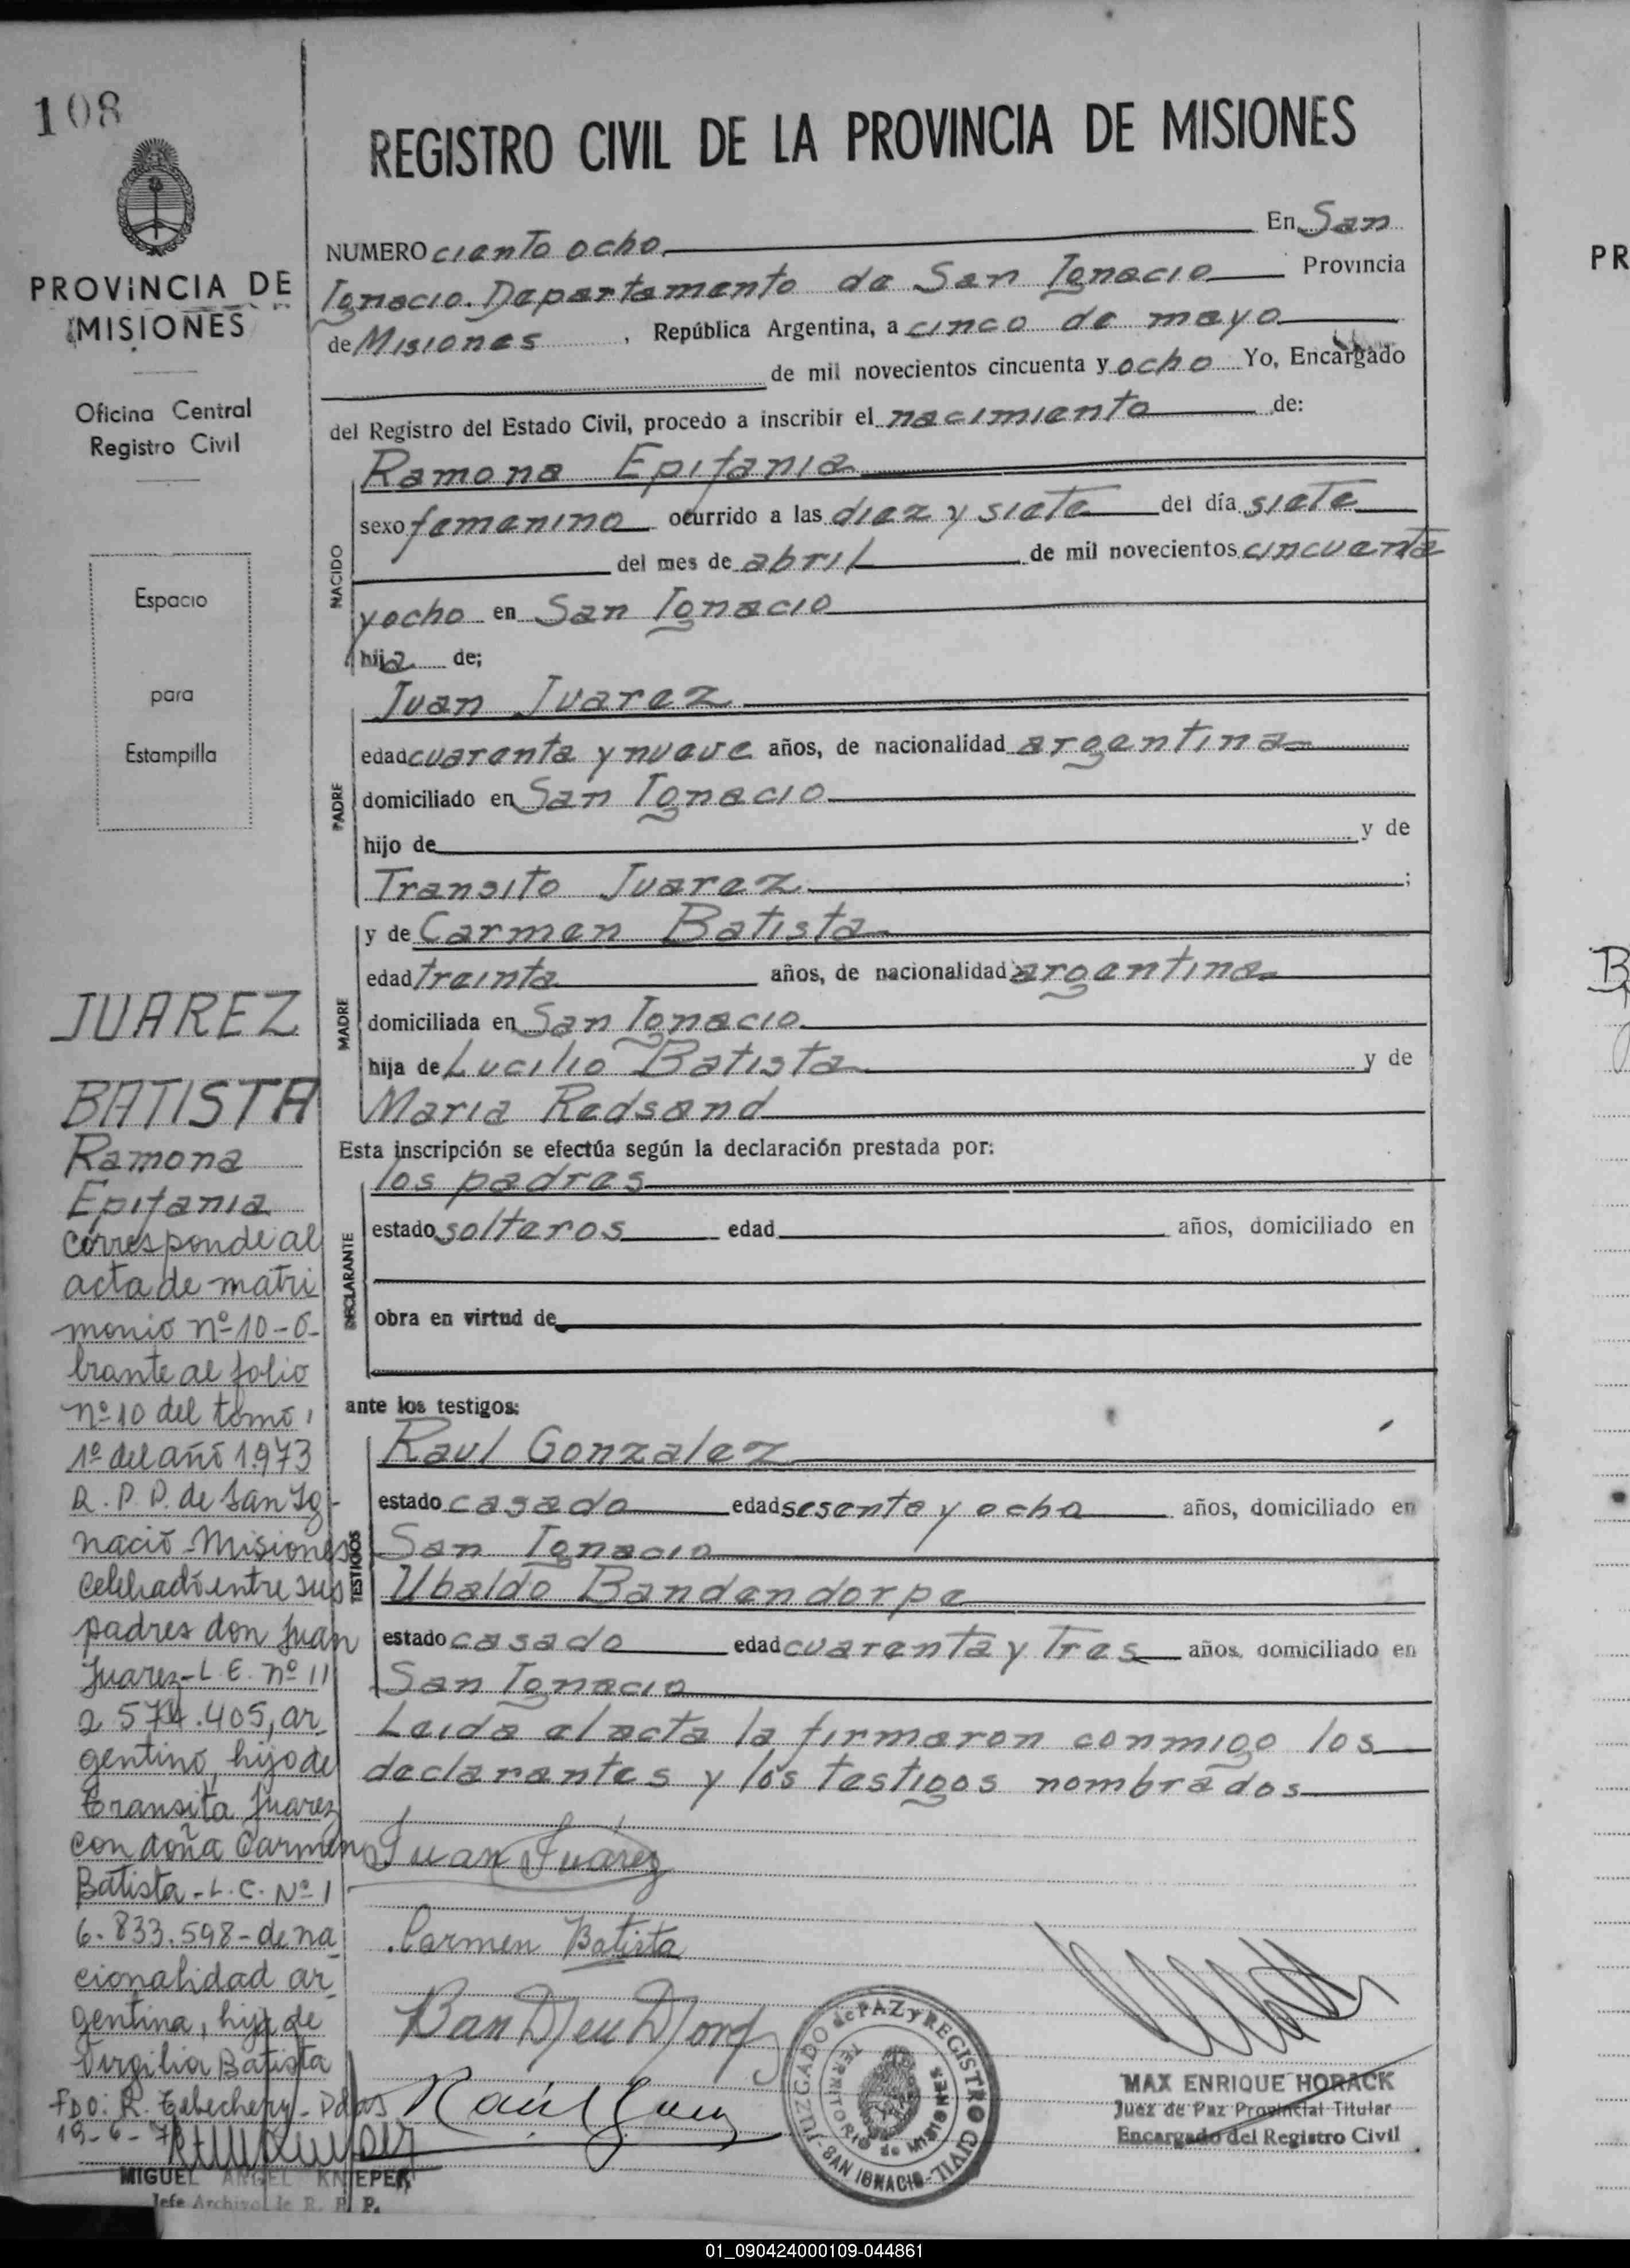 108
PROVINCIA DE
MISIONES
Oficina Central
Registro Civil
Espacio
para
Estampilla
JUAREZ
BATISTA
Ramona
Epifania
corresponde al
acta de matri
monio nº 10-o-
brante al folio
nº 10 del tomo
1º del año 1973
R. P. P. de San Ig-
nacio - Misiones
celebrado entre sus
padres don Juan
Juarez - L. E. nº
2 574.405, ar
gentino, hijo de
Transita Juarez
con doña Carmen
Batista - L. C. Nº
6.833.598 - de na
cionalidad ar
gentina, hija de
Virgilia Batista
FDO: R.
19-6-
MIGUEL ANGEL KNEPER
Jefe Archivo de R. P. P.
REGISTRO CIVIL DE LA PROVINCIA DE MISIONES
NUMERO ciento ocho En San
Ignacio. Departamento de San Ignacio Provincia
de Misiones, República Argentina, a cinco de mayo
de mil novecientos cincuenta y ocho Yo, Encargado
del Registro del Estado Civil, procedo a inscribir el nacimiento de:
NACIDO
Ramona Epifania
sexo femenino ocurrido a las diez y siete del día siete
del mes de abril de mil novecientos cincuenta
y ocho en San Ignacio
hija de;
PADRE
Juan Juarez
edad cuarenta y nueve años, de nacionalidad argentina
domiciliado en San Ignacio
hijo de y de
Transito Juarez ;
MADRE
y de Carmen Batista
edad treinta años, de nacionalidad argentina
domiciliada en San Ignacio
hija de Lucilio Batista y de
Maria Redsand
Esta inscripción se efectúa según la declaración prestada por:
DECLARANTE
los padres
estado solteros edad años, domiciliado en
obra en virtud de
ante los testigos:
TESTIGOS
Raul Gonzalez
estado casado edad sesenta y ocho años, domiciliado en
San Ignacio
Ubaldo Bandendorpe
estado casado edad cuarenta y tres años, domiciliado en
San Ignacio
Leida el acta la firmaron conmigo los
declarantes y los testigos nombrados
Juan Juárez
Carmen Batista
JUZGADO de PAZ y REGISTRO CIVIL - SAN IGNACIO -
TERRITORIO de MISIONES
MAX ENRIQUE HORACK
Juez de Paz Provincial Titular
Encargado del Registro Civil
PR
01_090424000109-044861